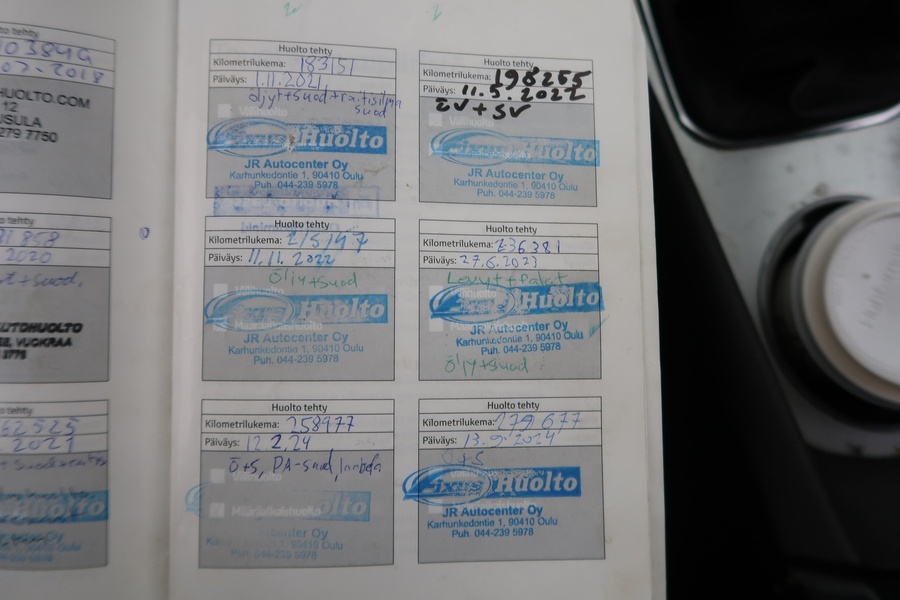 0384a
07-2018
HUOLTO.COM
12
USULA
279 7750
858
2020
t+suod,
AUTOHUOLTO
EE, VUOKRAA
3778
62525
2021
Huolto
Huolto tehty
Kilometrilukema: 183151
Päiväys: 1.11.2021
öljyt+suod+raitisilma
suod
Fixus Huolto
JR Autocenter Oy
Karhunkedontie 1, 90410 Oulu
Puh. 044-239 5978
Huolto tehty
Kilometrilukema: 198255
Päiväys: 11.5.2022
ÖV + SV
Välihuolto
Fixus Huolto
JR Autocenter Oy
Karhunkedontie 1, 90410 Oulu
Puh. 044-239 5978
Huolto tehty
Kilometrilukema: 215147
Päiväys: 11.11.2022
Öljy+suod
Fixus Huolto
Määräaikaishuolto
JR Autocenter Oy
Karhunkedontie 1, 90410 Oulu
Puh. 044-239 5978
Huolto tehty
Kilometrilukema: 236381
Päiväys: 27.6.2023
Levyt+Palat
Fixus Huolto
JR Autocenter Oy
Karhunkedontie 1, 90410 Oulu
Puh. 044-239 5978
Öljy+suod
Huolto tehty
Kilometrilukema: 258977
Päiväys: 12.2.24
Ö+S, PA-suod, lambda
Huolto
Määräaikaishuolto
JR Autocenter Oy
Karhunkedontie 1, 90410 Oulu
Puh. 044-239 5978
Huolto tehty
Kilometrilukema: 279677
Päiväys: 13.9.2024
Ö+S
Fixus Huolto
JR Autocenter Oy
Karhunkedontie 1, 90410 Oulu
Puh. 044-239 5978